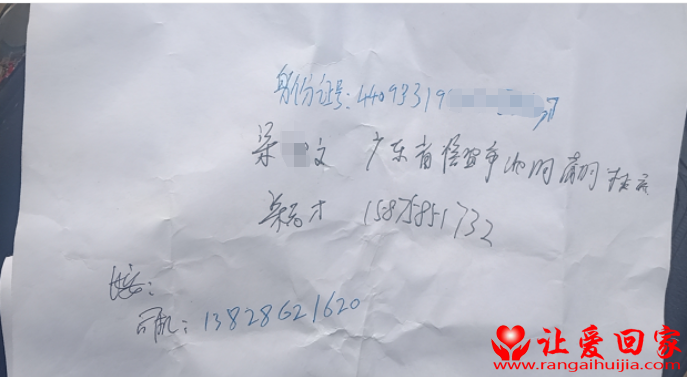 身份证号:4409319
梁 文 广东省信宜市池洞
梁 才 15875851732
接:
司机:13828621620
让爱回家
www.rangaihuijia.com